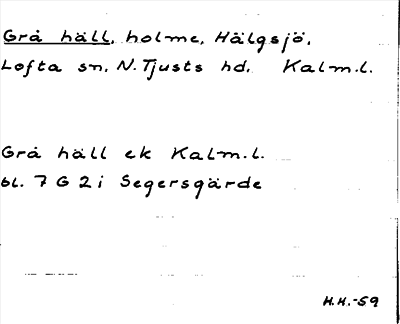 Grå häll, holme, Hälgsjö,
Lofta sn. N. Tjusts hd. Kalm.l.
Grå häll ek Kalm.l.
bl. 7 G 2 i Segersgärde
H.H.-59